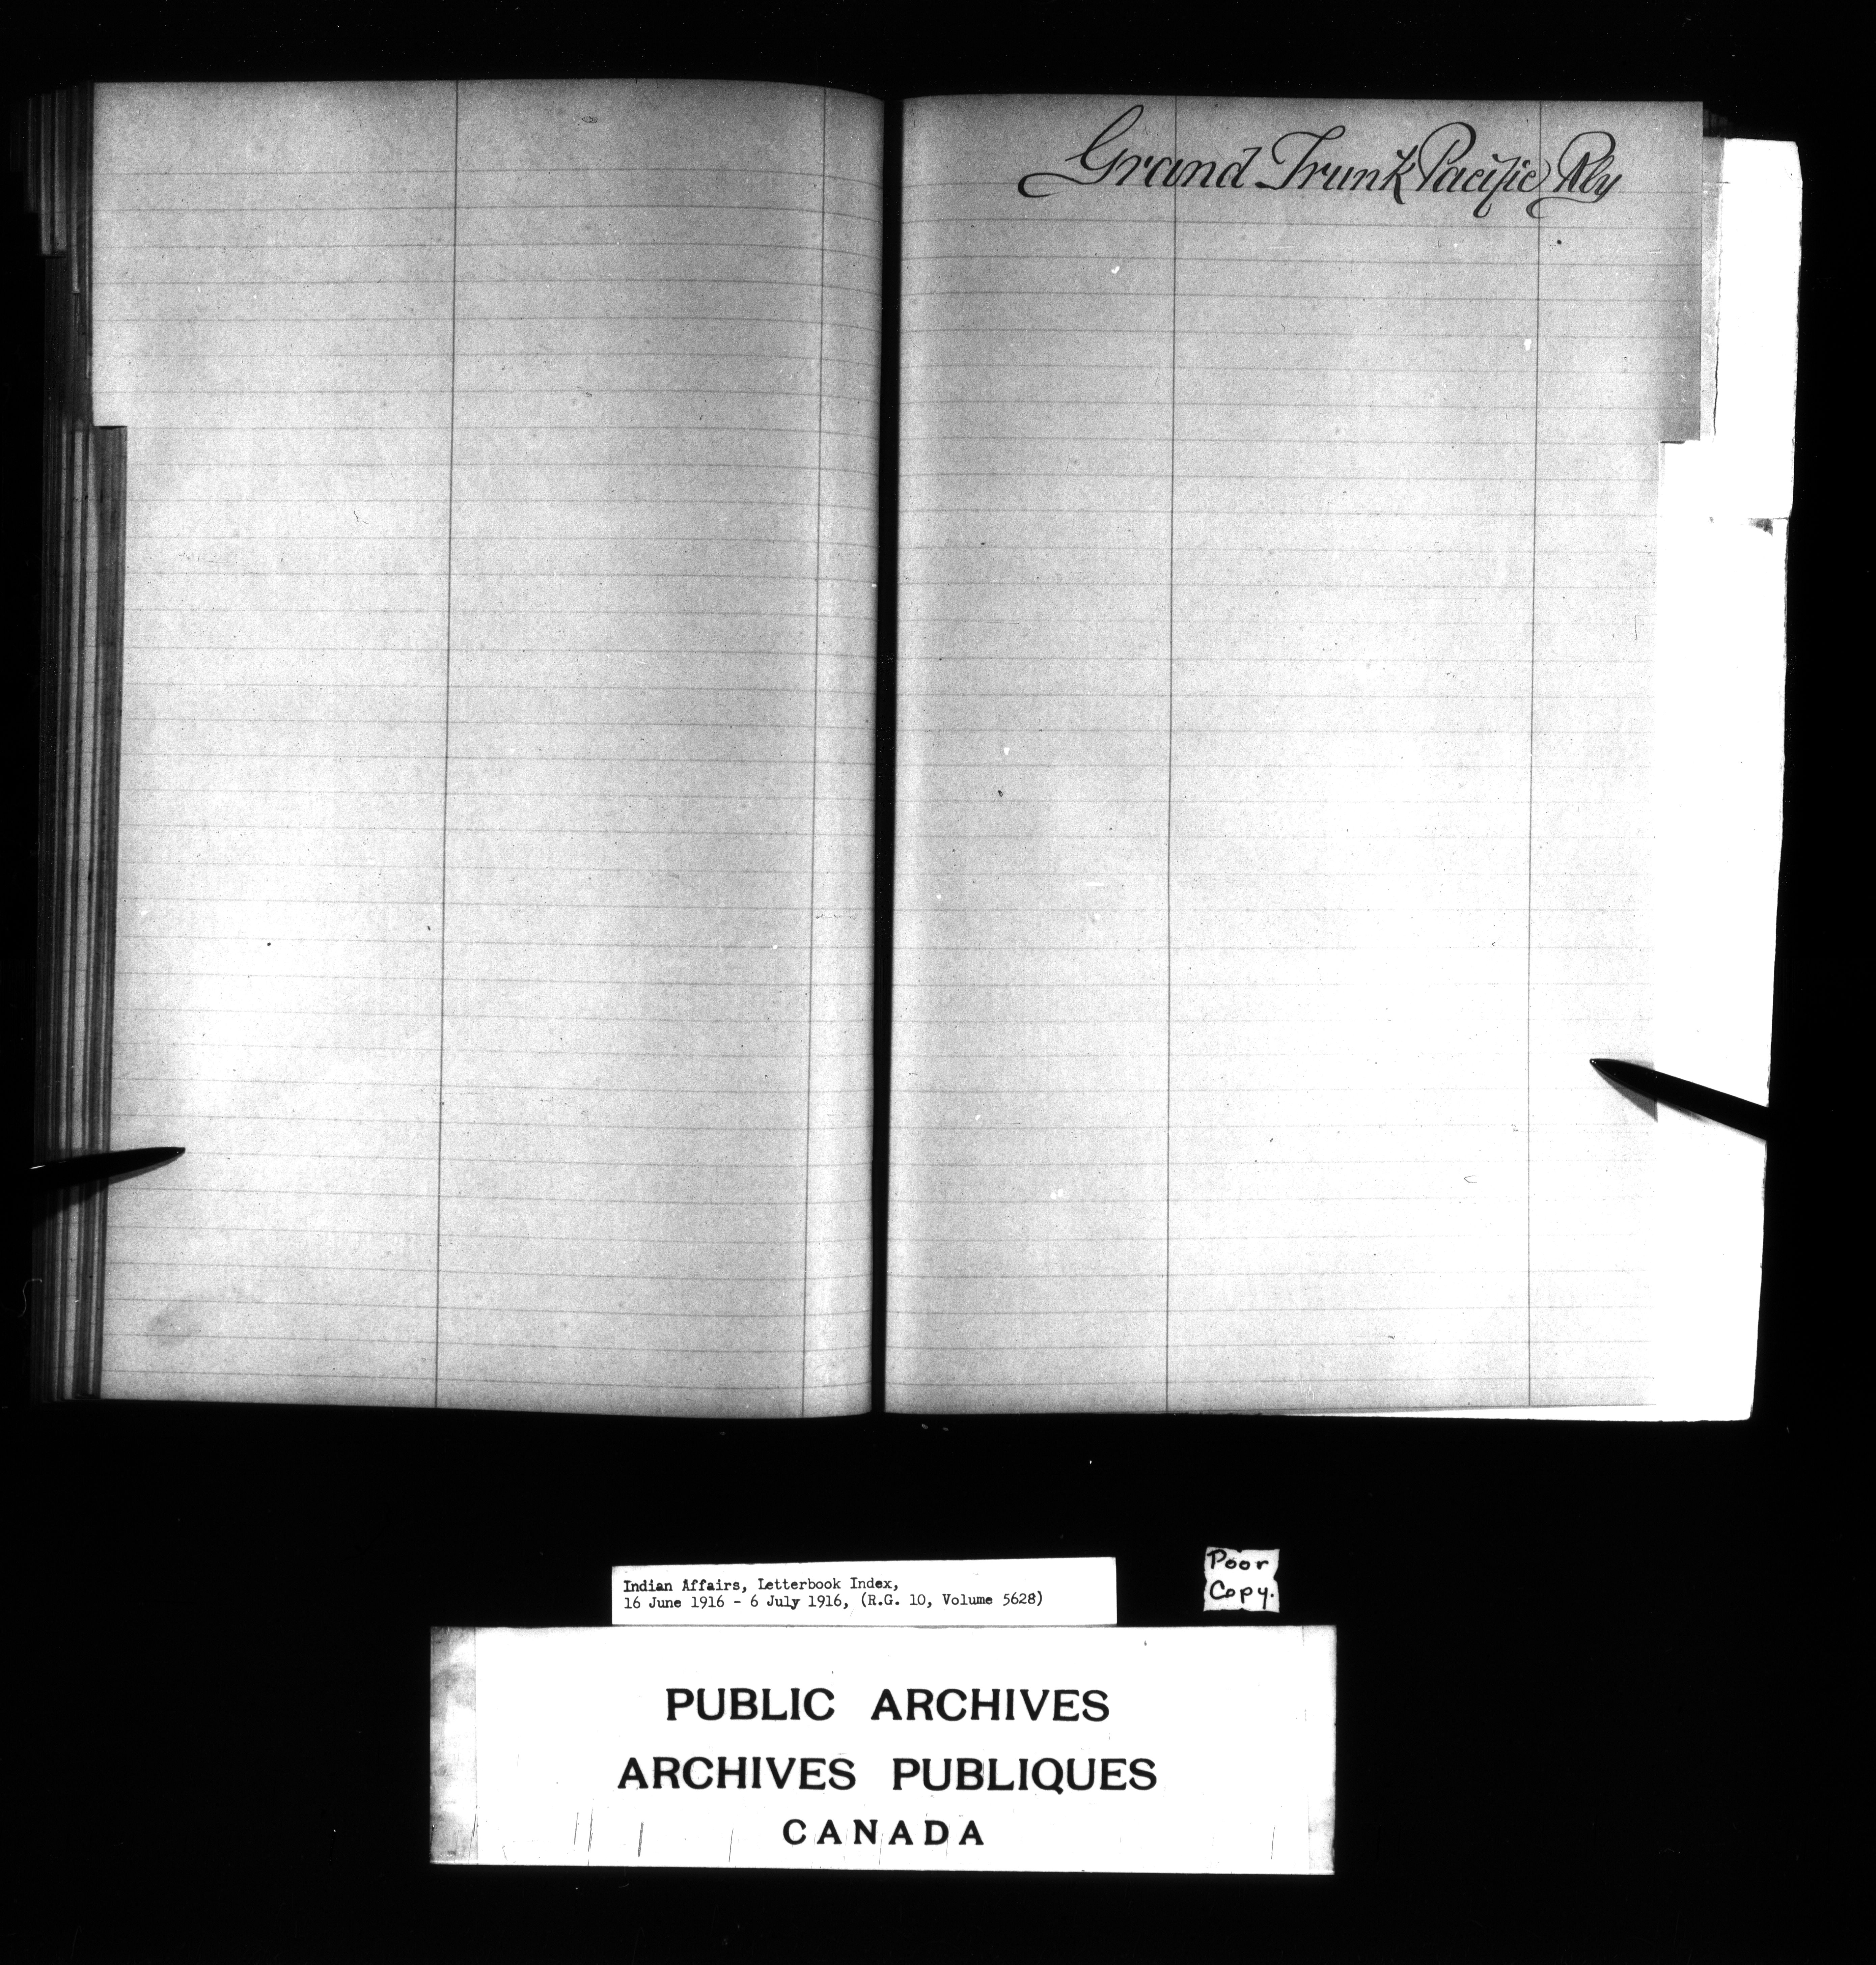 Grand Trunk Pacific Rly
Poor
Copy.
Indian Affairs, Letterbook Index,
16 June 1916 - 6 July 1916, (R.G. 10, Volume 5628)
PUBLIC ARCHIVES
ARCHIVES PUBLIQUES
CANADA